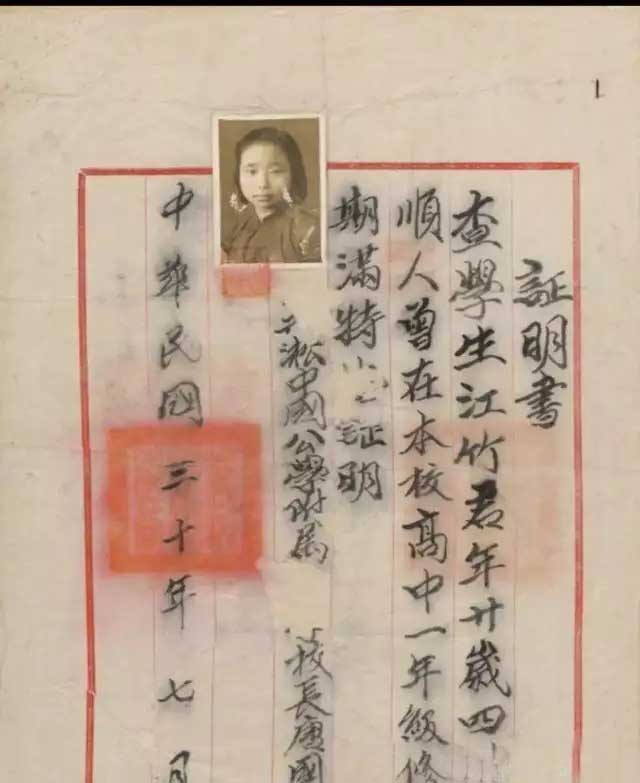 1
証明書
查學生江竹君年廿歲四
順人曾在本校高中一年級修
期滿特 証明
淞中國公學附属 校長唐國
中華民國三十年七月